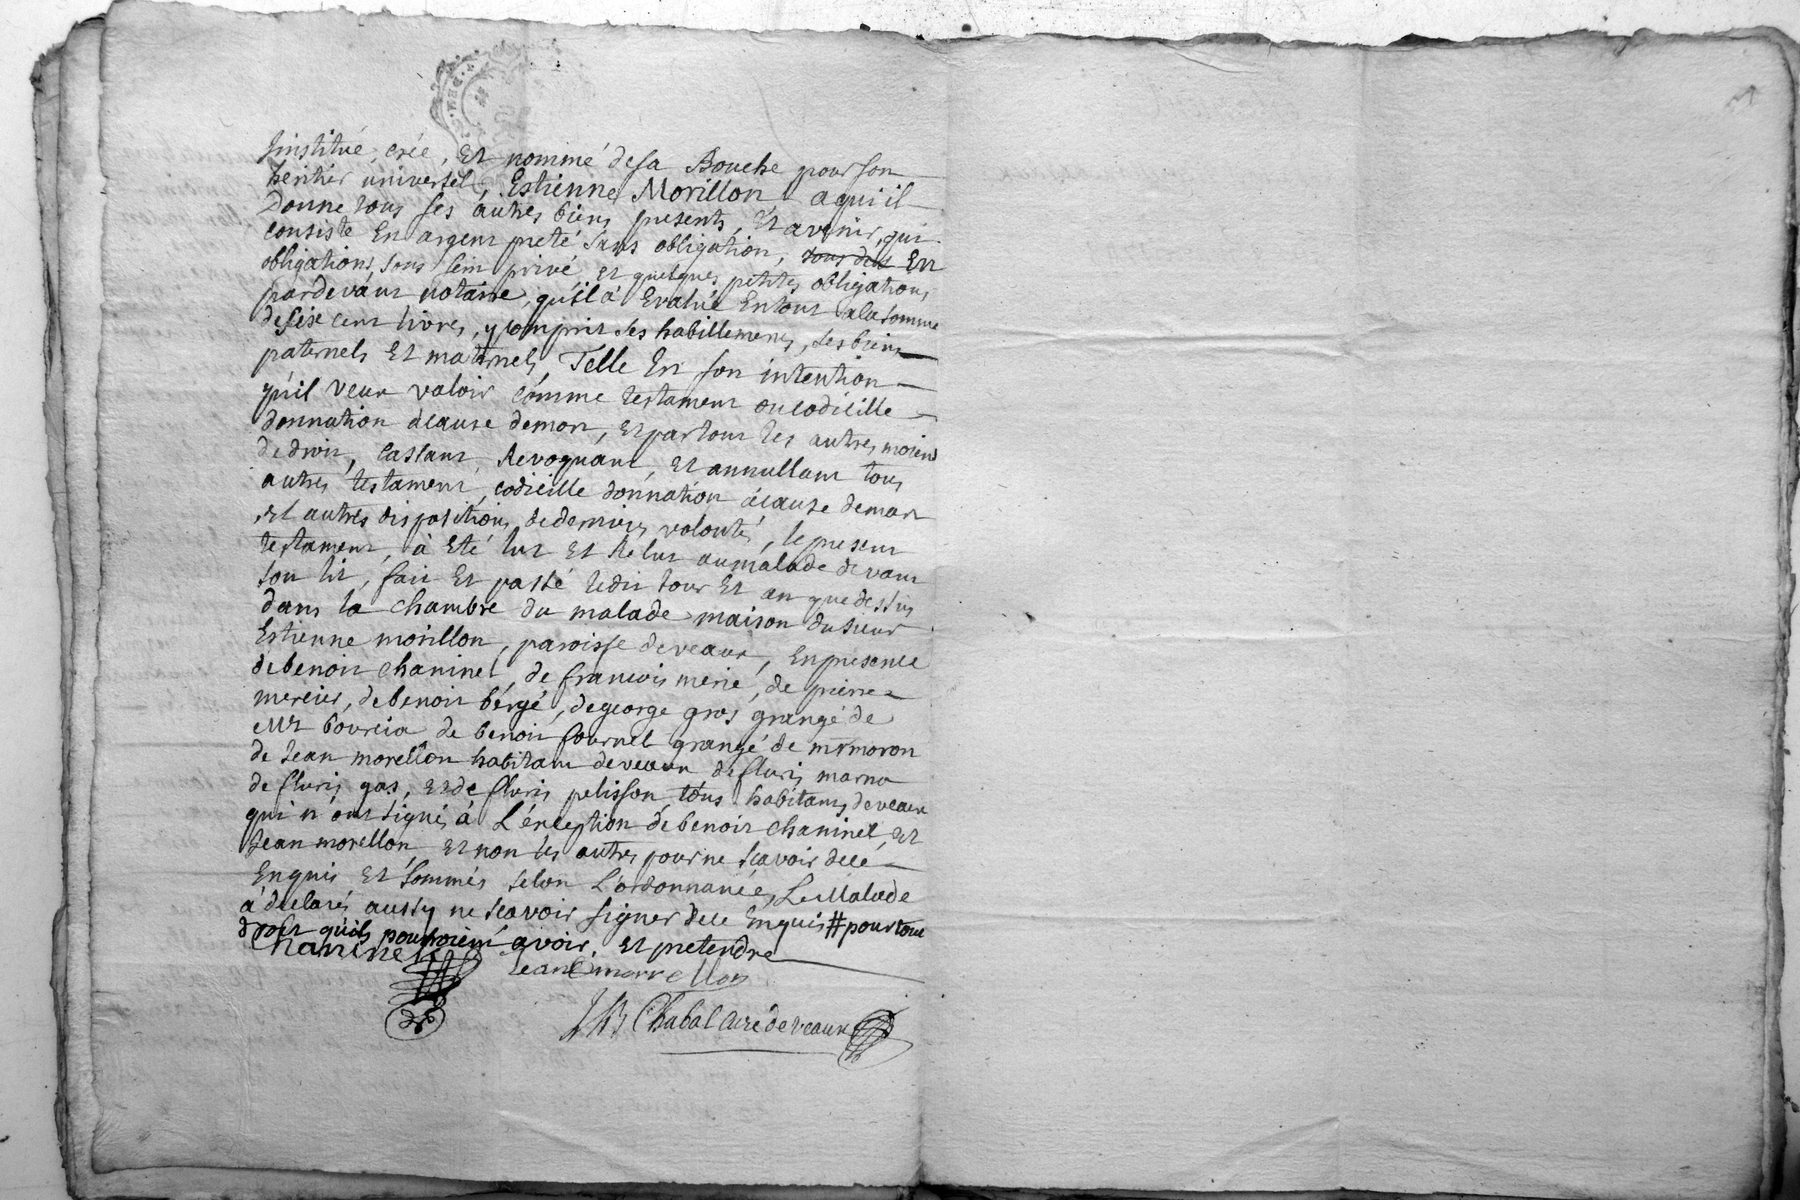 Jnstitué, créé, Et nommé de sa Bouche pour son
héritier universel, Estienne Morillon a qui il
Donne tous ses autres biens presents, Et avenir, qui
consiste En argent preté sans obligation, En
obligations sous sein privé et quelques petites obligations
pardevant notaire, qu'il à Evalué En tout a la somme
de seise cent livres, y compris ses habillements, ses biens
paternels Et maternels, Telle Est son intention
qu'il veut valoir comme testament ou codicille
donnation à cause de mort, et par tous les autres moiens
de droit, Cassant, Revoquant, et annullant tous
autres testament, codicille donnation à cause de mort
et autres dispositions de dernieres volonté, le present
testament, à Eté lut Et Relut au malade devant
son lit, fait Et passé ledit jour Et an que dessus
dans la chambre du malade maison du sieur
Estienne morillon, paroisse de veaux, En presence
de benoit chaninel, de francois merié, de pierre
mercier, de benoit bérgé, de george gros grangé de
Mr bourcia de benoit fournel grangé de mr moron
de Jean morellon habitant de veaux de fluris marno
de fluris gas, et de fluris pelisson, tous habitants de veaux
qui n'ont signés à L'éxception de benoit chaninel, et
Jean morellon, et non les autres pour ne scavoir de ce
Enquis Et sommés selon L'ordonnance, Le Malade
à declaré, aussy ne scavoir signer de ce Enquis # pour tous
droits qu'ils pourroient avoir, et pretendre
Chaninel
Jean morrellon
Chabal Curé de veaux